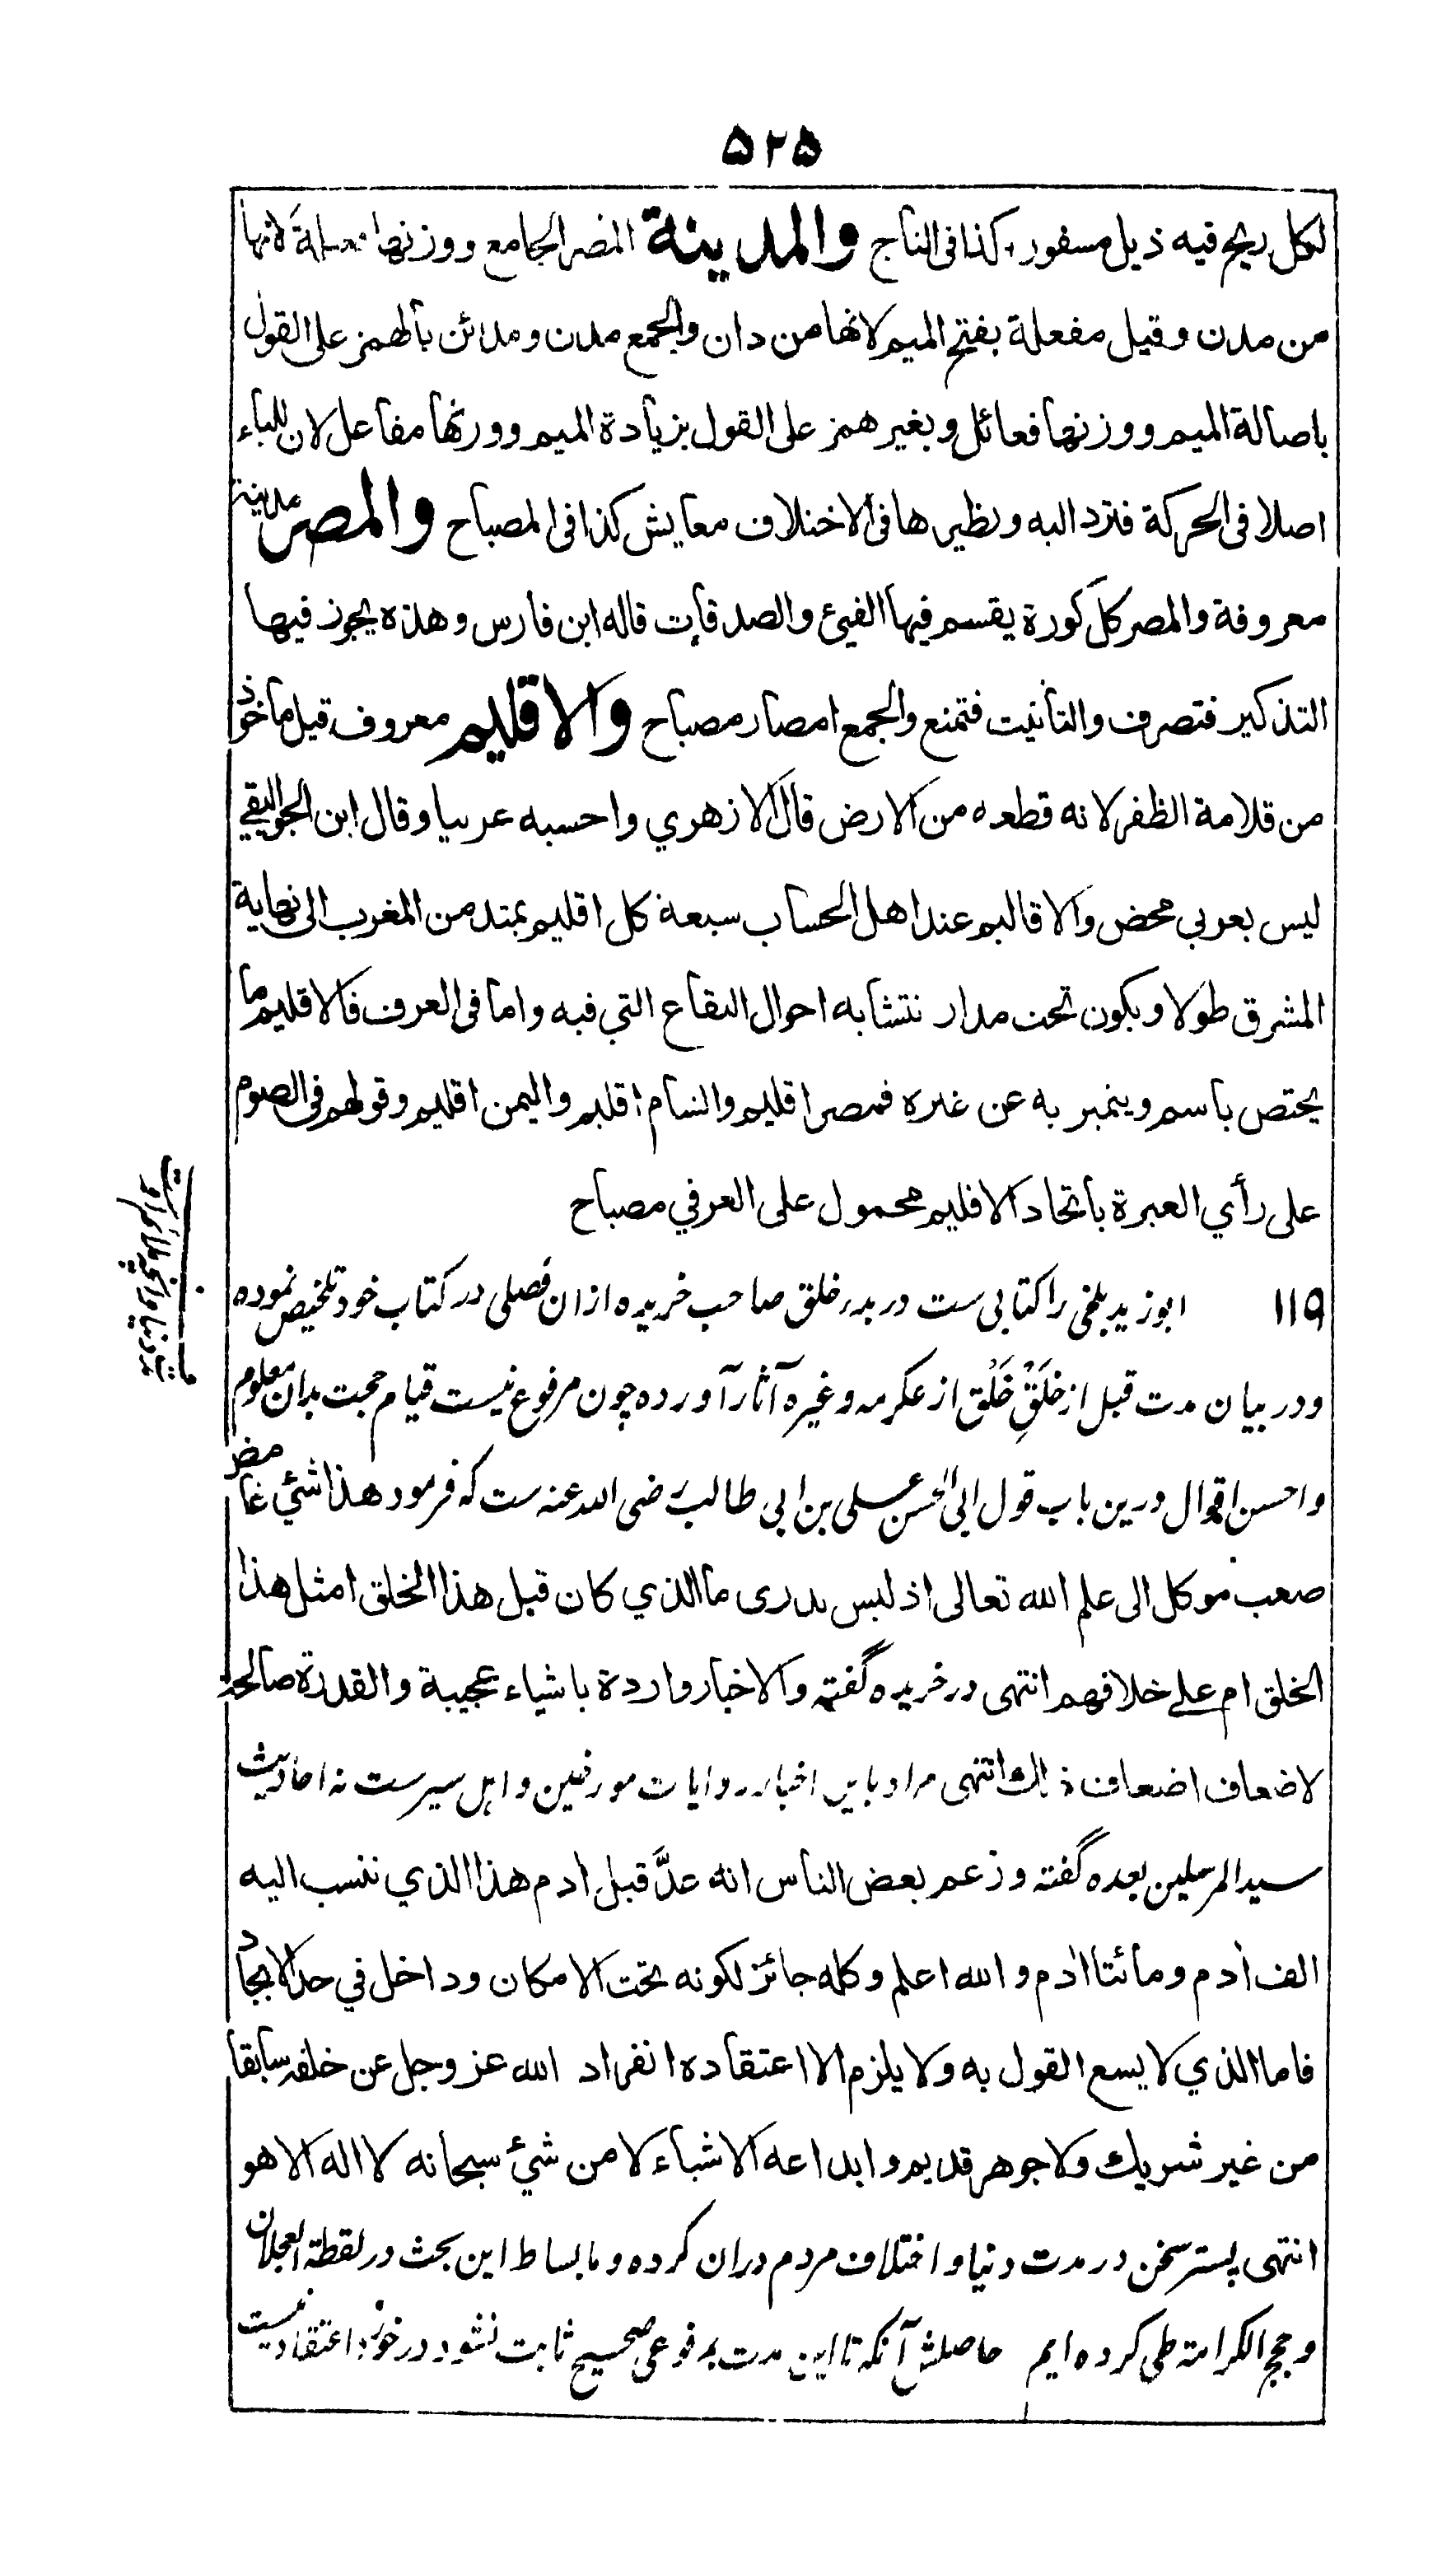 ۵۲۵
لكل ريح فيه ذيل مسفور، كذا في التاج والمدينة المصر الجامع ووزنها فعيلة لانها
من مدن وقيل مفعلة بفتح الميم لانها من دان والجمع مدن ومدائن بالهمز على القول
باصالة الميم ووزنها فعائل وبغير همز على القول بزيادة الميم ووزنها مفاعل لان للياء
اصلا في الحركة فترد اليه ونظيرها في الاختلاف معايش كذا في المصباح والمصر مدينة
معروفة والمصر كل كورة يقسم فيها الفيئ والصدقات قاله ابن فارس وهذه يجوز فيها
التذكير فتصرف والتأنيث فتمنع والجمع امصار مصباح والاقليم معروف قيل ماخوذ
من قلامة الظفر لانه قطعه من الارض قال الازهري واحسبه عربيا وقال ابن الجواليقي
ليس بعربي محض والاقاليم عند اهل الحساب سبعة كل اقليم يمتد من المغرب الى نهاية
المشرق طولا ويكون تحت مدار تتشابه احوال البقاع التي فيه واما في العرف فالاقليم ما
يختص باسم ويتميز به عن غيره فمصر اقليم والشام اقليم واليمن اقليم وقولهم في الصوم
على رأي العبرة باتحاد الاقليم محمول على العرفي مصباح
۱۱۹ ابو زيد بلخى را كتابى ست در بدر خلق صاحب خريده ازان فصلى در كتاب خود تلخيص نموده
ودر بيان مدت قبل از خَلَقِ خَلْق از عكرمه وغيره آثار آورده چون مرفوع نيست قيام حجت بدان معلوم
واحسن اقوال درين باب قول ابى الحسن على بن ابى طالب رضى الله عنه ست كه فرمود هذا شئ غامض
صعب موكل الى علم الله تعالى اذ ليس يدرى ما الذي كان قبل هذا الخلق امثل هذا
الخلق ام على خلافهم انتهى در خريده گفته والاخبار واردة باشياء عجيبة والقدرة صالحة
لاضعاف اضعاف ذلك انتهى مراد باين اخبار روايات مورخين واهل سير ست نه احاديث
سيد المرسلين بعده گفته وزعم بعض الناس انه عدَّ قبل ادم هذا الذي ننسب اليه
الف أدم ومائتا ادم والله اعلم وكله جائز لكونه تحت الامكان وداخل في حد الايجاد
فاما الذي لا يسع القول به ولا يلزم الا اعتقاده انفراد الله عز وجل عن خلقه سابقا
من غير شريك ولا جوهر قديم وابداعه الاشياء لا من شيء سبحانه لا اله الا هو
انتهى پستر سخن در مدت دنيا واختلاف مردم دران كرده وما بساط اين بحث در لقطة العجلان
وحجج الكرامة طى كرده ايم حاصلش آنكه تا اين مدت بمرفوعى صحيح ثابت نشود در خورد اعتقاد نيست